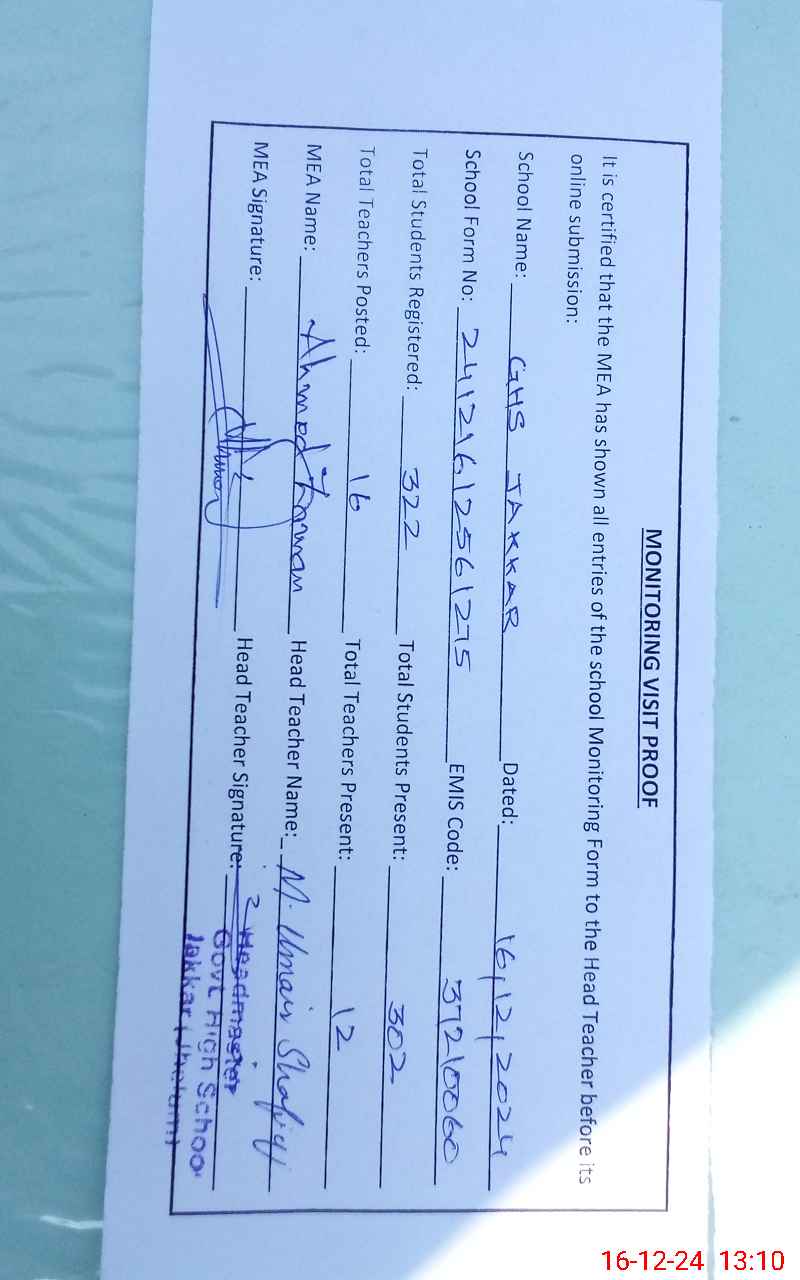 MONITORING VISIT PROOF
It is certified that the MEA has shown all entries of the school Monitoring Form to the Head Teacher before its
online submission:
School Name: GHS JAKKAR Dated: 16,12,2024
School Form No: 24121612561275 EMIS Code: 37210060
Total Students Registered: 322 Total Students Present: 302
Total Teachers Posted: 16 Total Teachers Present: 12
MEA Name: Ahmed Head Teacher Name: M. Umair Shafiq
MEA Signature: Head Teacher Signature:
Headmaster
Govt High School
Jakkar (Jhelum)
16-12-24 13:10